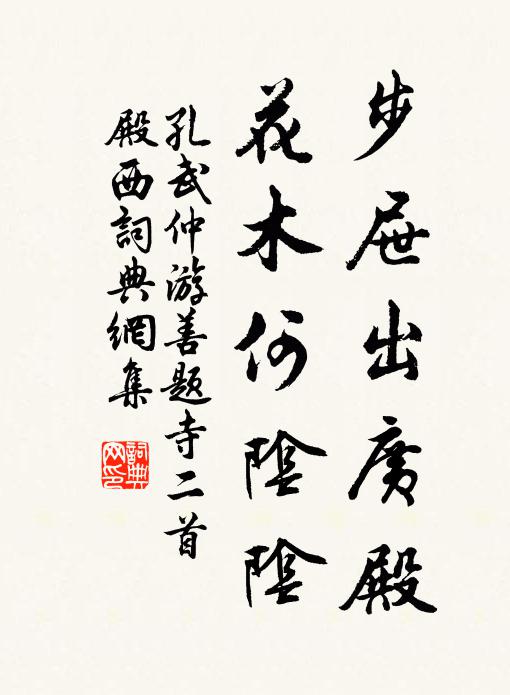 步屧出廣殿
花木何陰陰
孔武仲游善题寺二首
殿西詞典網集
詞典網印